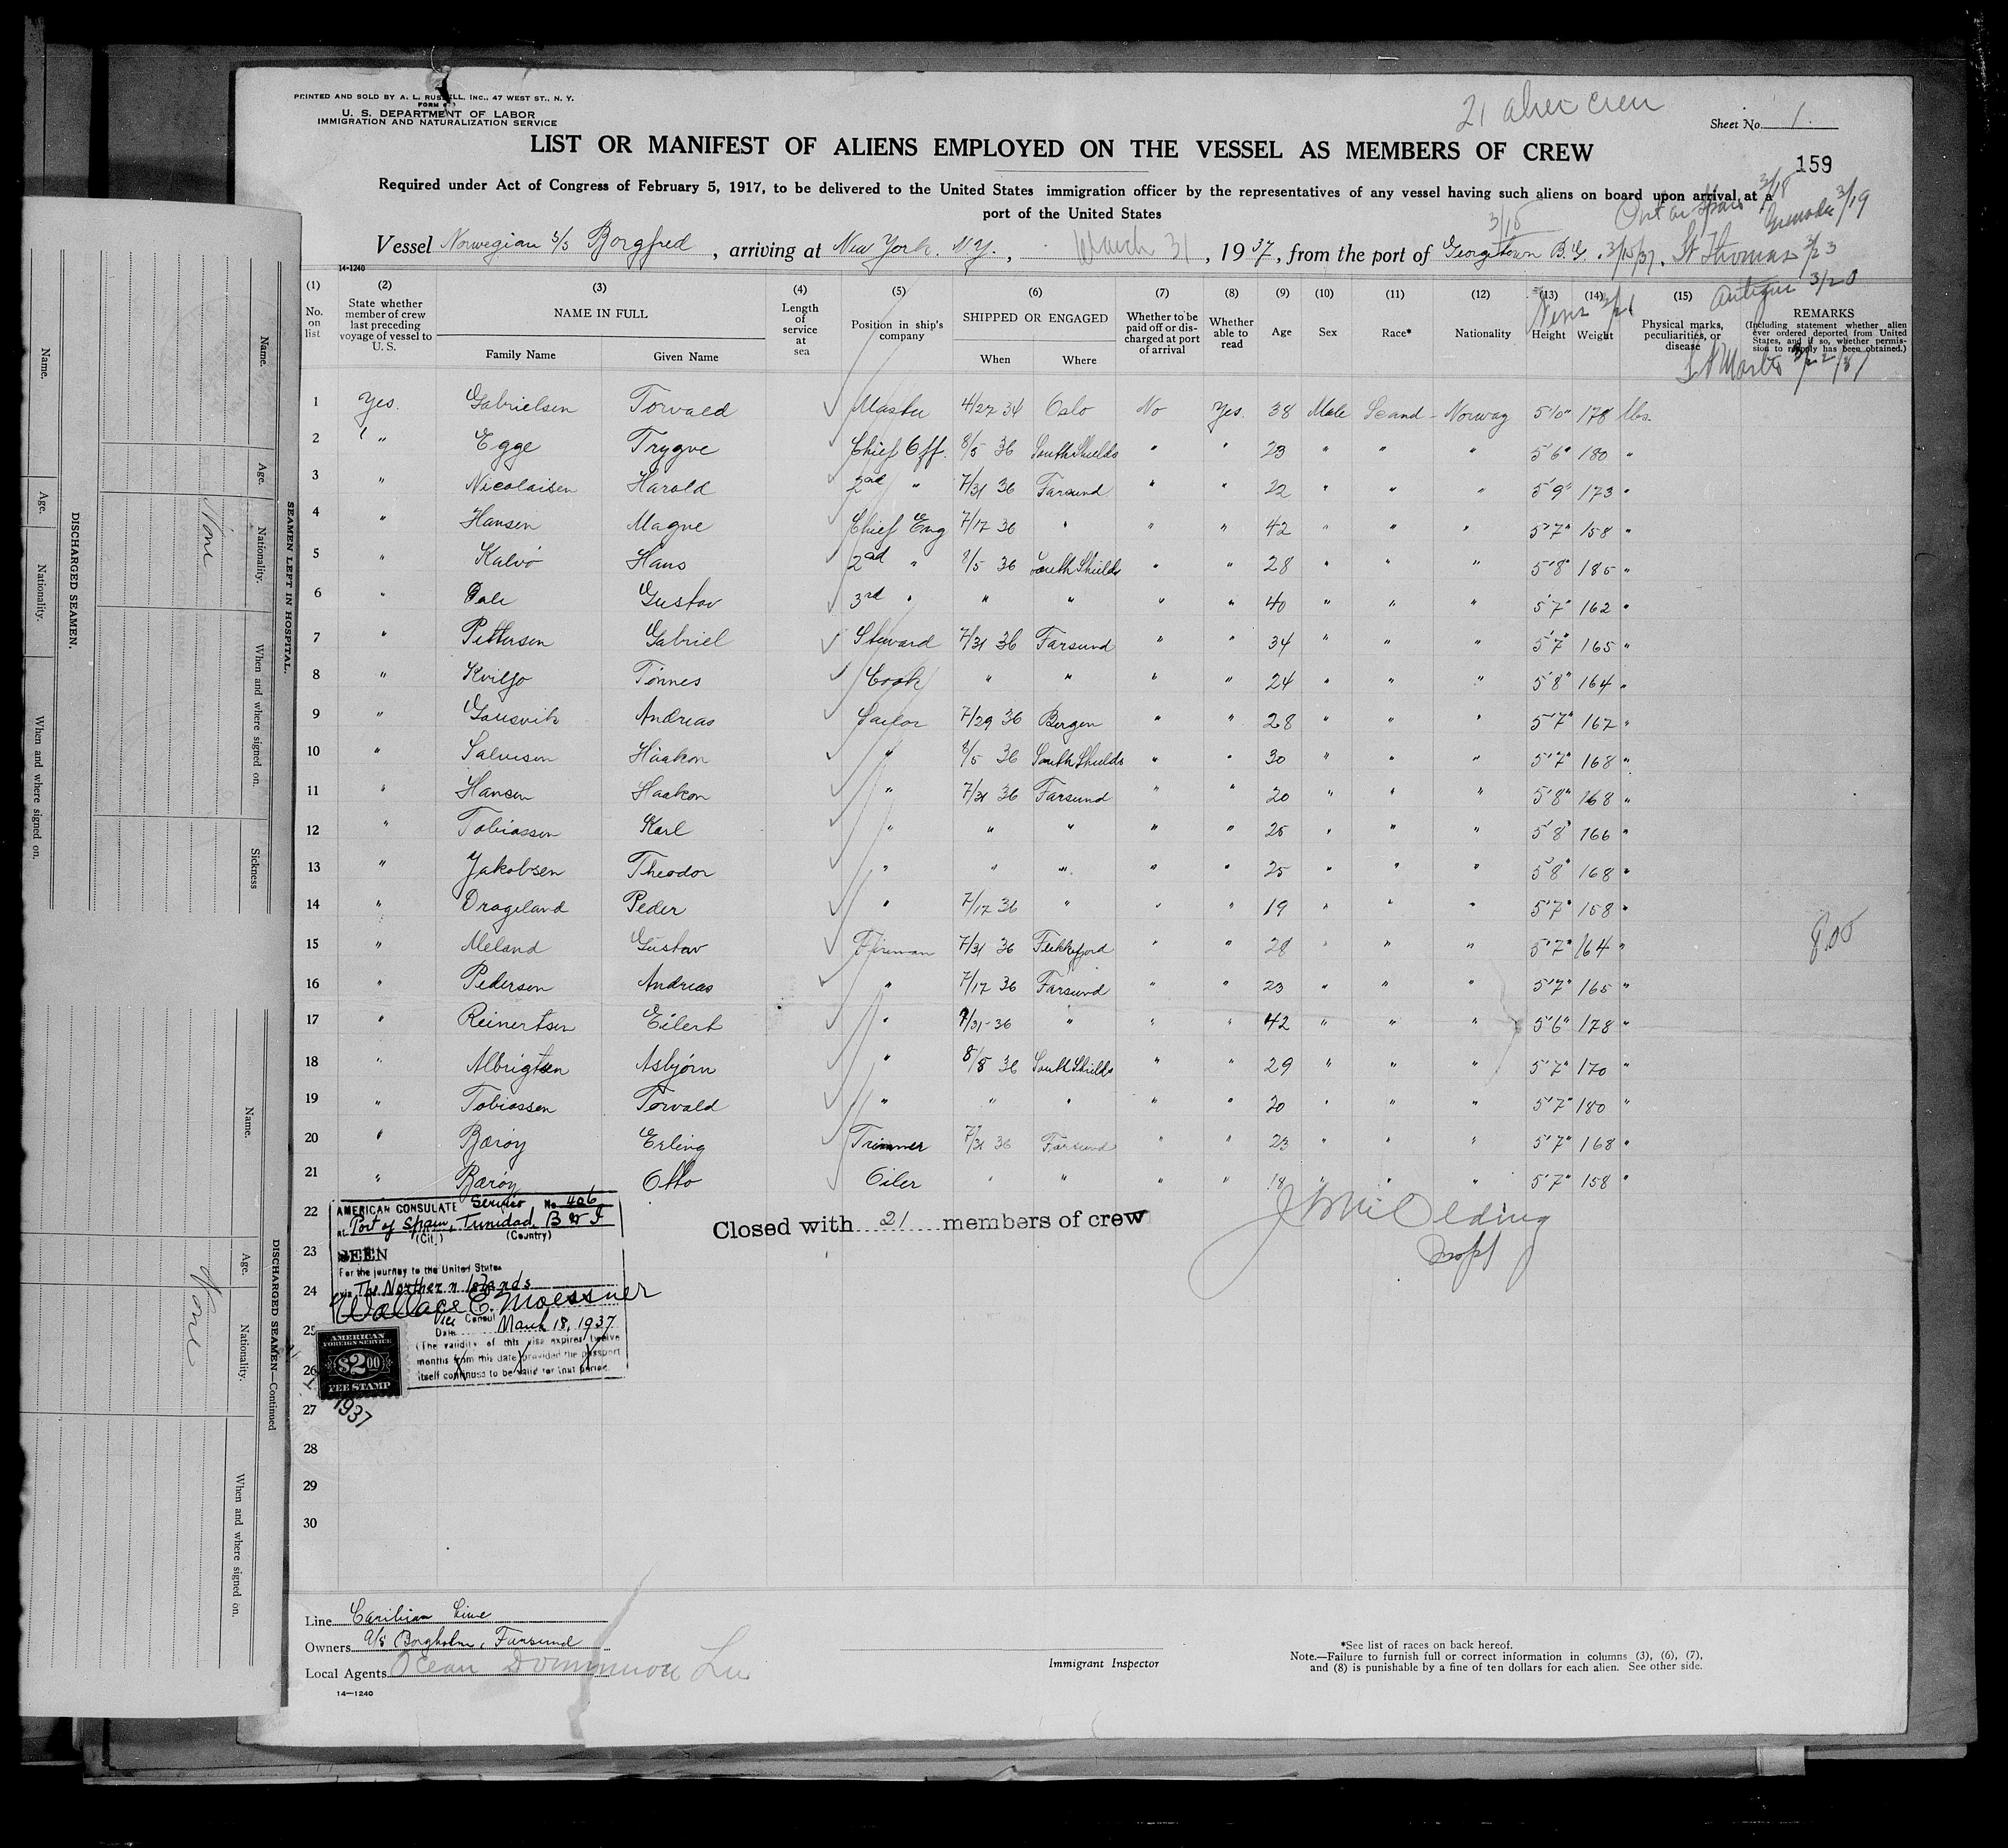 PRINTED AND SOLD BY A. L. RUSSELL, INC., 47 WEST ST., N. Y.
U. S. DEPARTMENT OF LABOR
IMMIGRATION AND NATURALIZATION SERVICE
21 alien crew
Sheet No. 1.
LIST OR MANIFEST OF ALIENS EMPLOYED ON THE VESSEL AS MEMBERS OF CREW
159
Required under Act of Congress of February 5, 1917, to be delivered to the United States immigration officer by the representatives of any vessel having such aliens on board upon arrival at a
port of the United States
3/18 Port of Spain 3/18 Grenada 3/19
Vessel Norwegian S/S Borgfred, arriving at New York. N.Y., March 31, 1937, from the port of Georgetown B.G. 3/15/37. St Thomas 3/23
Antigua 3/20
Nevis 3/21
St Martts 3/22/37
14-1240
(1) (2) (3) (4) (5) (6) (7) (8) (9) (10) (11) (12) (13) (14) (15)
No. on list
State whether member of crew last preceding voyage of vessel to U. S.
NAME IN FULL
Family Name
Given Name
Length of service at sea
Position in ship's company
SHIPPED OR ENGAGED
When
Where
Whether to be paid off or discharged at port of arrival
Whether able to read
Age
Sex
Race*
Nationality
Height
Weight
Physical marks, peculiarities, or disease
REMARKS
(Including statement whether alien ever ordered deported from United States, and if so, whether permission to reapply has been obtained.)
1 Yes. Gabrielsen Torvald Master 4/27 34 Oslo No Yes. 38 Male Scand- Norway 5'10" 178 lbs.
2 " Egge Trygve Chief Off. 8/5 36 South Shields " " 23 " " " 5'6" 180 "
3 " Nicolaisen Harald 2nd " 7/31 36 Farsund " " 22 " " " 5'9" 173 "
4 " Hansen Magne Chief Eng 7/17 36 " " " 42 " " " 5'7" 158 "
5 " Kalvö Hans 2nd " 8/5 36 South Shields " " 28 " " " 5'8" 185 "
6 " Dale Gustav 3rd " " " " " 40 " " " 5'7" 162 "
7 " Pettersen Gabriel Steward 7/31 36 Farsund " " 34 " " " 5'7" 165 "
8 " Kviljo Tönnes Cook " " " " 24 " " " 5'8" 164 "
9 " Andreas Sailor 7/29 36 Bergen " " 28 " " " 5'7" 167 "
10 " Salvesen Håakon " 8/5 36 South Shields " " 30 " " " 5'7" 168 "
11 " Hansen Haakon " 7/31 36 Farsund " " 20 " " " 5'8" 168 "
12 " Tobiassen Karl " " " " " 25 " " " 5'8" 166 "
13 " Jakobsen Theodor " " " " " 25 " " " 5'8" 168 "
14 " Drageland Peder " 7/17 36 " " " 19 " " " 5'7" 158 "
15 " Meland Gustav Fireman 7/31 36 Flekkefjord " " 28 " " " 5'7" 164 "
800
16 " Pedersen Andreas " 7/17 36 Farsund " " 23 " " " 5'7" 165 "
17 " Reinertsen Eilert " 7/31-36 " " " 42 " " " 5'6" 178 "
18 " Albrigtsen Asbjörn " 8/8 36 South Shields " " 29 " " " 5'7" 170 "
19 " Tobiassen Torvald " " " " " 20 " " " 5'7" 180 "
20 " Baröy Erling Trimmer 7/31 36 Farsund " " 23 " " " 5'7" 168 "
21 " Baröy Otto Oiler " " " " 18 " " " 5'7" 158 "
22
23
24
25
26
27
28
29
30
Closed with 21 members of crew
Insp
AMERICAN CONSULATE Service No. 406
At Port of Spain, Trinidad, B W I
(City) (Country)
SEEN
For the journey to the United States
via The Northern Islands
Wallace E. Moessner
Vice Consul
Date March 18, 1937
(The validity of this visa expires twelve
months from this date provided the passport
itself continues to be valid for that period.
AMERICAN
FOREIGN SERVICE
$2.00
FEE STAMP
1937
Line Caribian Line
Owners A/S Borgholm, Farsund
Local Agents Ocean Dominion Line
14—1240
Immigrant Inspector
*See list of races on back hereof.
Note.—Failure to furnish full or correct information in columns (3), (6), (7),
and (8) is punishable by a fine of ten dollars for each alien. See other side.
SEAMEN LEFT IN HOSPITAL.
Name.
Age.
Nationality.
When and where signed on.
Sickness
None
DISCHARGED SEAMEN.
Name.
Age.
Nationality.
When and where signed on.
DISCHARGED SEAMEN—Continued
Name.
Age.
Nationality.
When and where signed on.
None